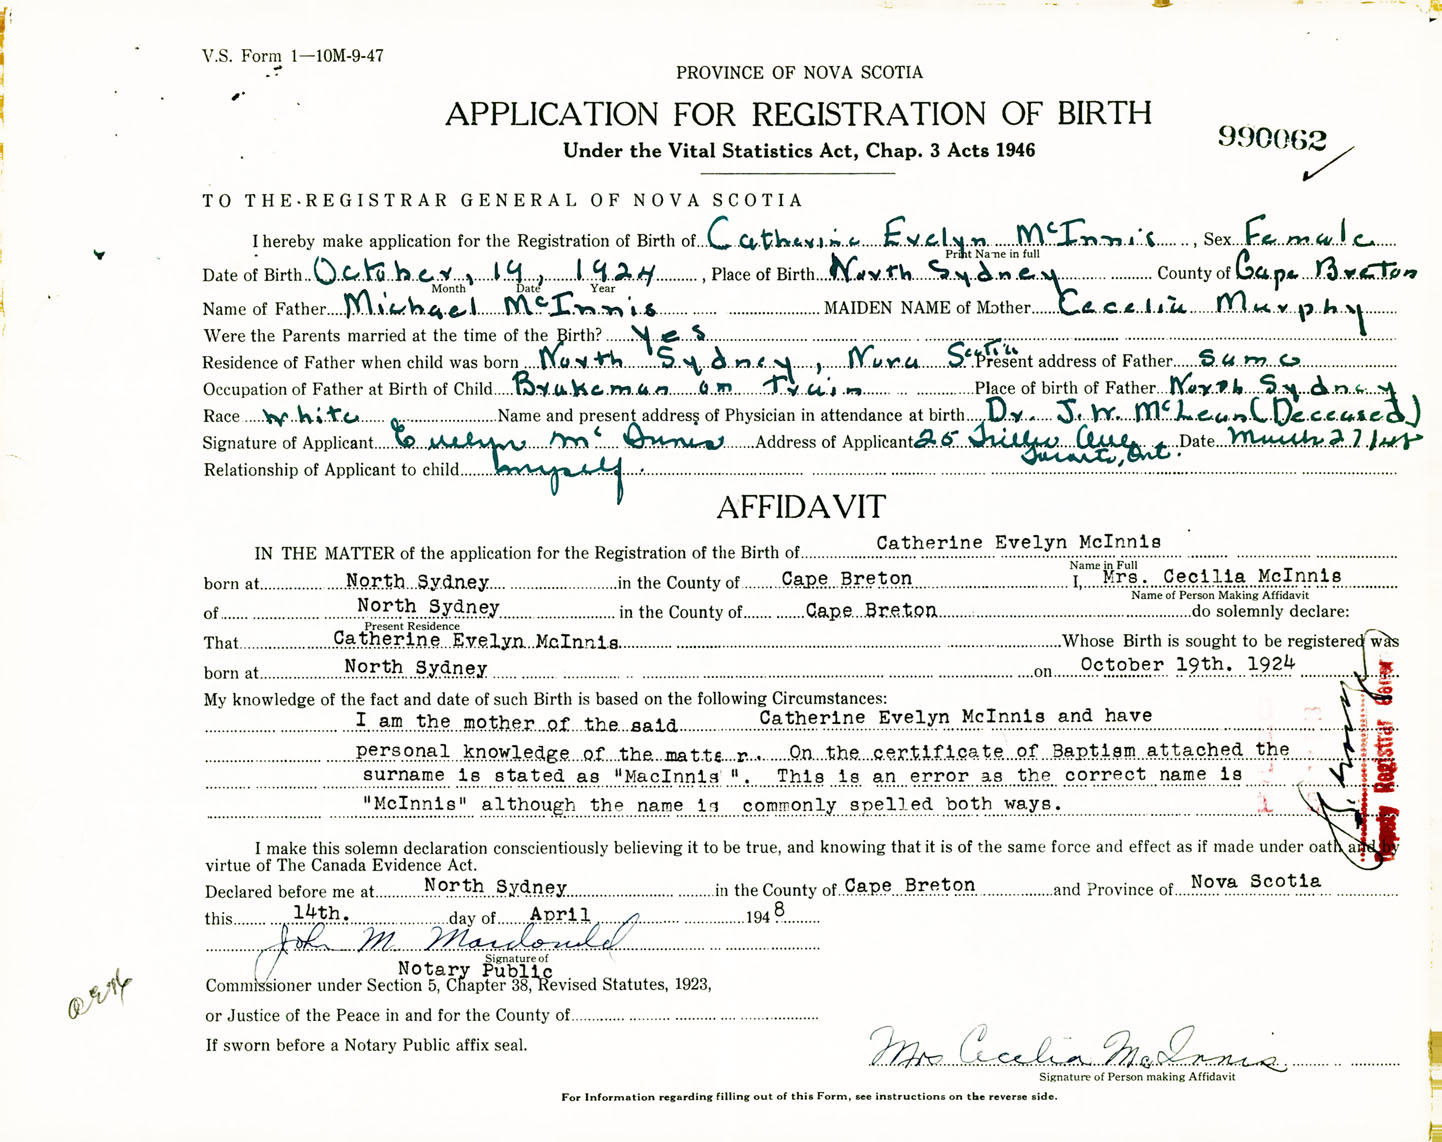 V.S. Form 1—10M-9-47
PROVINCE OF NOVA SCOTIA
APPLICATION FOR REGISTRATION OF BIRTH
990062
Under the Vital Statistics Act, Chap. 3 Acts 1946
TO THE REGISTRAR GENERAL OF NOVA SCOTIA
I hereby make application for the Registration of Birth of Catherine Evelyn McInnis, Sex Female
Print Name in full
Date of Birth October, 19, 1924, Place of Birth North Sydney County of Cape Breton
Month Date Year
Name of Father Michael McInnis MAIDEN NAME of Mother Cecelia Murphy
Were the Parents married at the time of the Birth? Yes
Residence of Father when child was born North Sydney, Nova Scotia Present address of Father same
Occupation of Father at Birth of Child Brakeman on train Place of birth of Father North Sydney
Race White Name and present address of Physician in attendance at birth Dr. J. W. McLean (Deceased)
Signature of Applicant C Evelyn McInnis Address of Applicant 25 Ave, Date March 27/48
Toronto, Ont.
Relationship of Applicant to child myself.
AFFIDAVIT
IN THE MATTER of the application for the Registration of the Birth of Catherine Evelyn McInnis
Name in Full
born at North Sydney in the County of Cape Breton I, Mrs. Cecilia McInnis
Name of Person Making Affidavit
of North Sydney in the County of Cape Breton do solemnly declare:
Present Residence
That Catherine Evelyn McInnis Whose Birth is sought to be registered was
born at North Sydney on October 19th. 1924
My knowledge of the fact and date of such Birth is based on the following Circumstances:
I am the mother of the said Catherine Evelyn McInnis and have
personal knowledge of the matter. On the certificate of Baptism attached the
surname is stated as "MacInnis". This is an error as the correct name is
"McInnis" although the name is commonly spelled both ways.
Deputy Registrar General
I make this solemn declaration conscientiously believing it to be true, and knowing that it is of the same force and effect as if made under oath and by
virtue of The Canada Evidence Act.
Declared before me at North Sydney in the County of Cape Breton and Province of Nova Scotia
this 14th. day of April 1948
John M. Macdonald
Signature of
Notary Public
Commissioner under Section 5, Chapter 38, Revised Statutes, 1923,
or Justice of the Peace in and for the County of
If sworn before a Notary Public affix seal.
Mrs Cecelia McInnis
Signature of Person making Affidavit
For Information regarding filling out of this Form, see instructions on the reverse side.